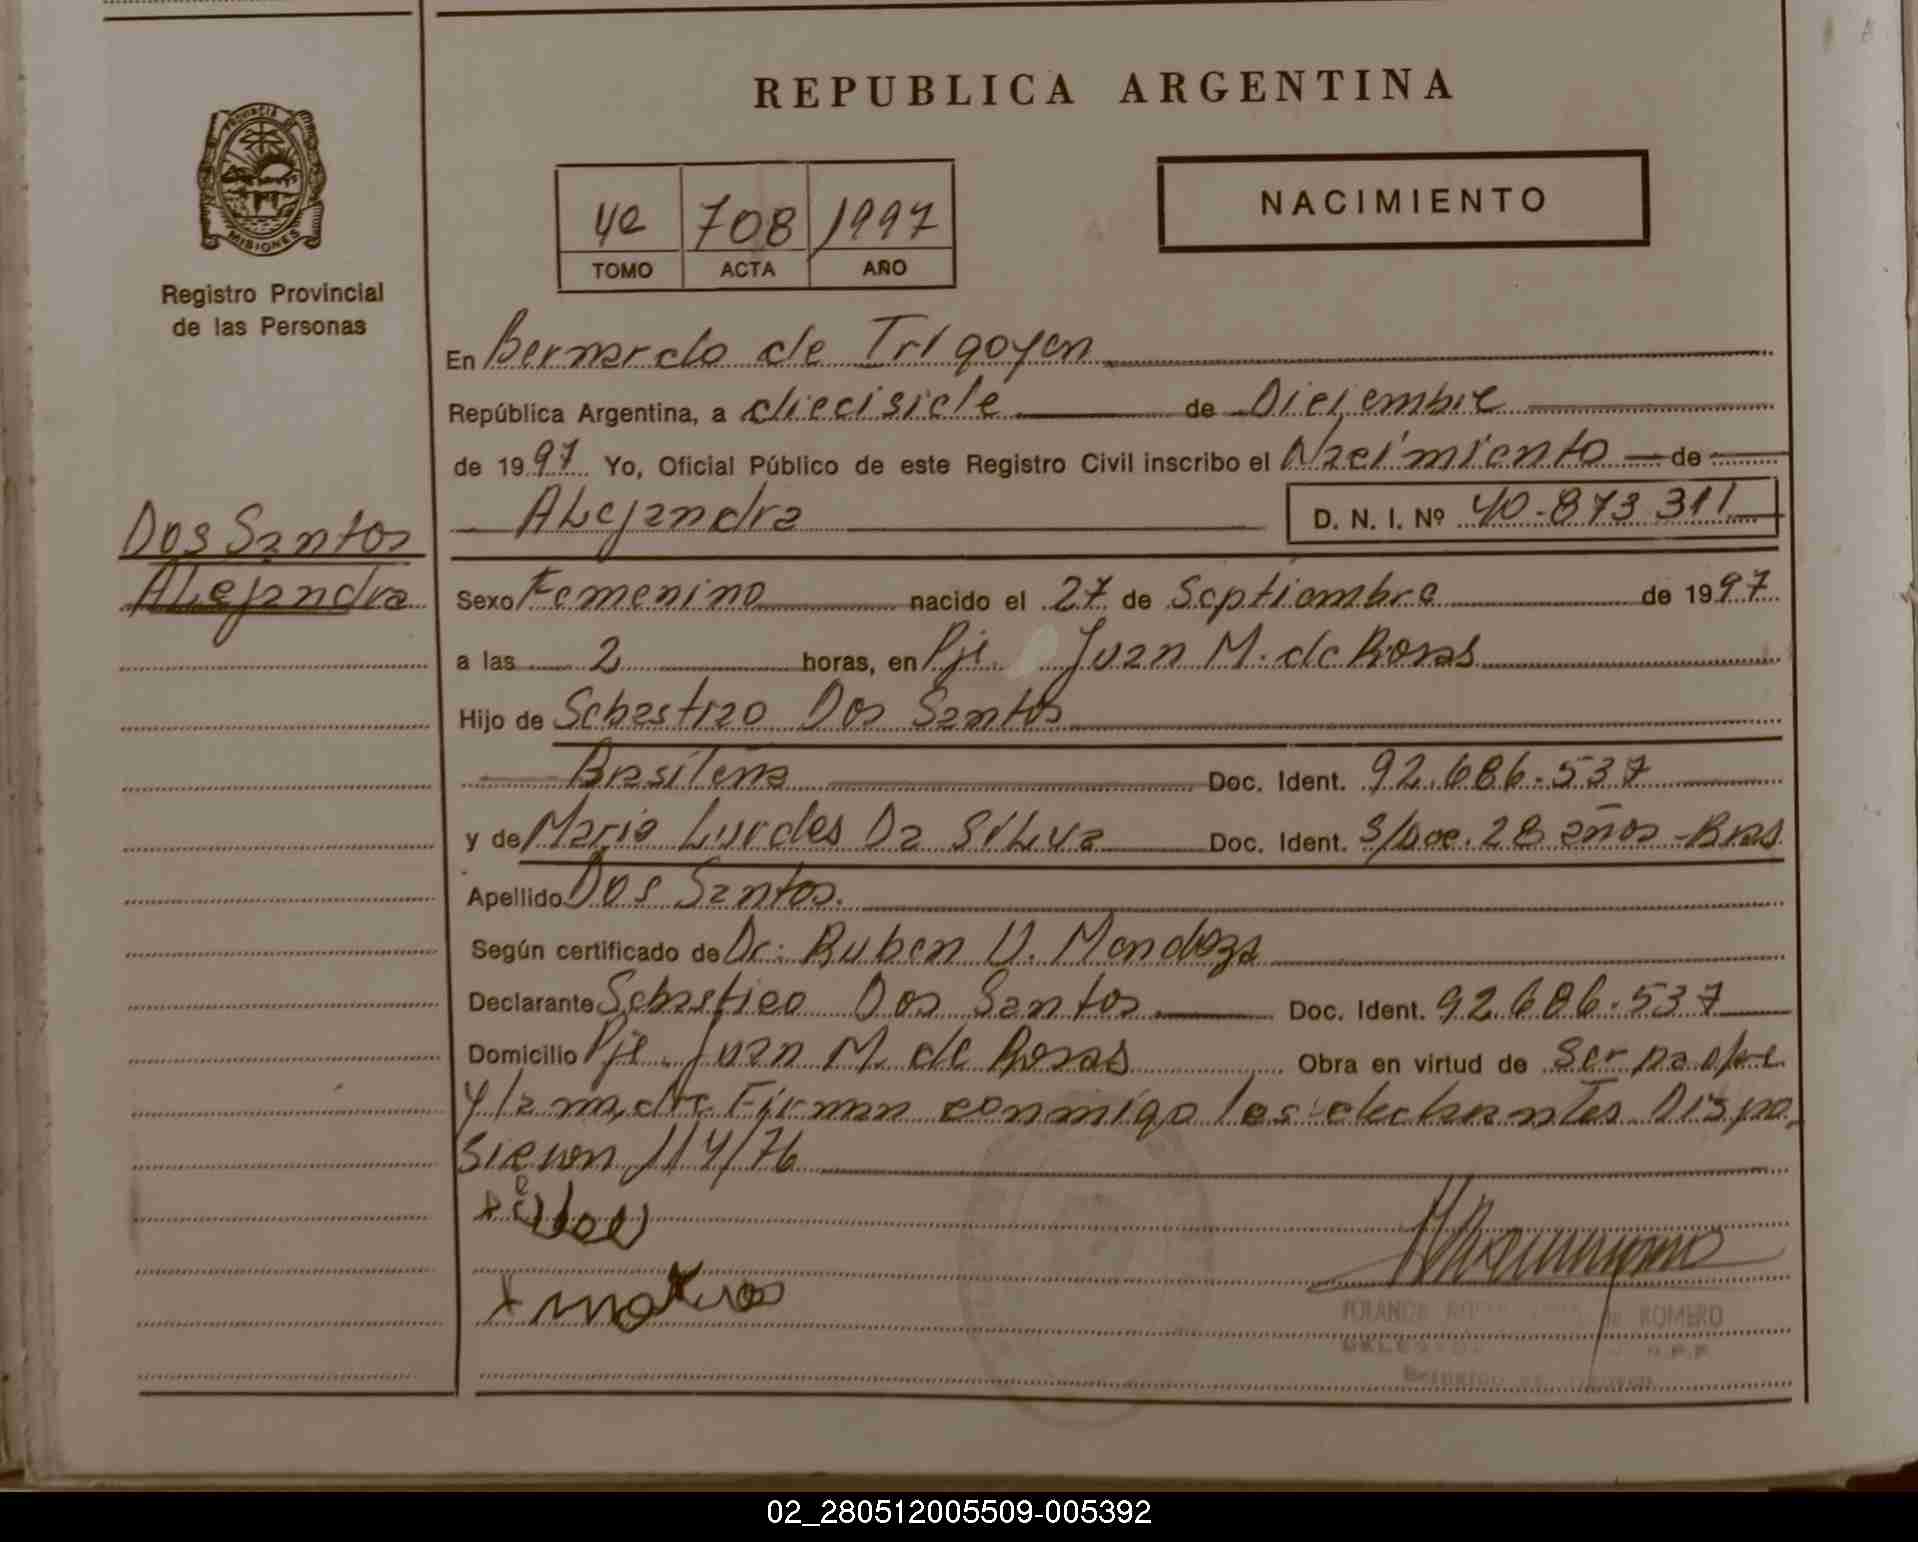 REPUBLICA ARGENTINA
PROVINCIA DE
MISIONES
Registro Provincial
de las Personas
4e 708 1997
TOMO ACTA AÑO
NACIMIENTO
En Bernardo de Irigoyen
República Argentina, a diecisiete de Diciembre
de 1997 Yo, Oficial Público de este Registro Civil inscribo el Nacimiento de
Alejandra D. N. I. Nº 40.873.311
Dos Santos
Alejandra
Sexo Femenino nacido el 27 de Septiembre de 1997
a las 2 horas, en Pje Juan M. de Rosas
Hijo de Sebastiao Dos Santos
Brasileña Doc. Ident. 92.686.537
y de Maria Lurdes Da Silva Doc. Ident. S/Doc. 28 años - Bras
Apellido Dos Santos.
Según certificado de Dr: Ruben V. Mendoza
Declarante Sebastiao Dos Santos Doc. Ident. 92.686.537
Domicilio Pje. Juan M. de Rosas Obra en virtud de ser padre
y la madre Firman conmigo los declarantes Dispo
sicion 114/76
ROMERO